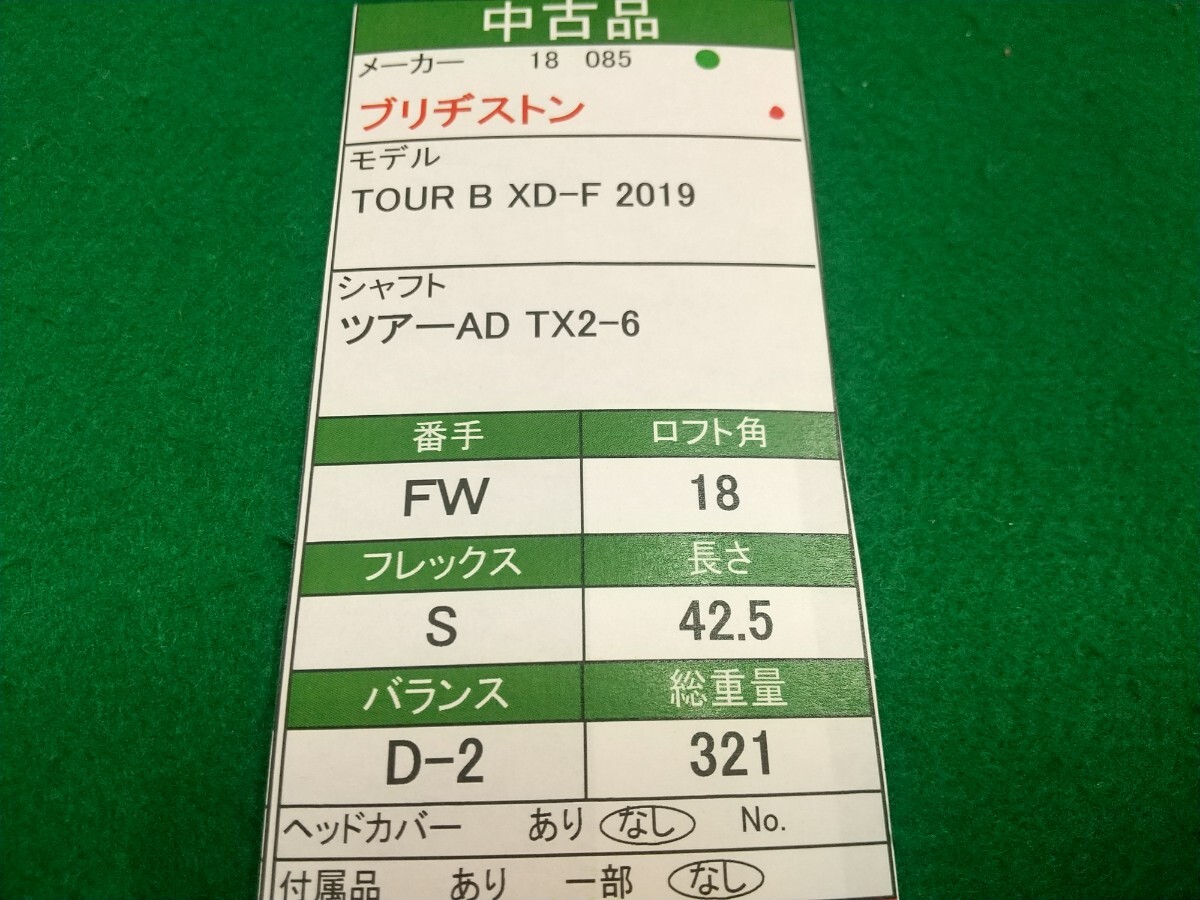 中古品
メーカー 18 085
ブリヂストン
モデル
TOUR B XD-F 2019
シャフト
ツアーAD TX2-6
番手 ロフト角
FW 18
フレックス 長さ
S 42.5
バランス 総重量
D-2 321
ヘッドカバー あり なし No.
付属品 あり 一部 なし